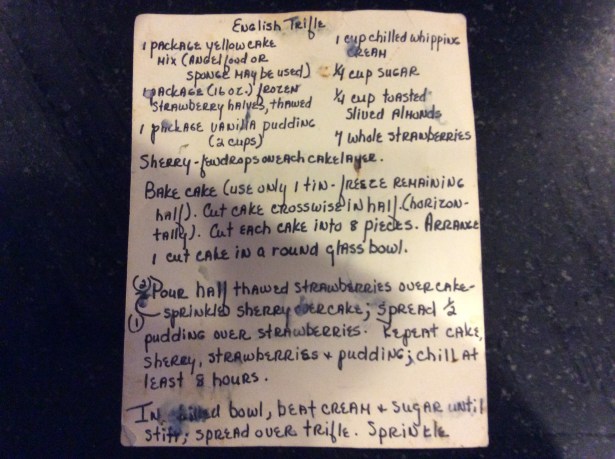 English Trifle
1 package yellow cake
mix (Angel food or
sponge may be used)
1 package (16 oz.) frozen
strawberry halves, thawed
1 package vanilla pudding
(2 cups)
1 cup chilled whipping
cream
1/4 cup sugar
1/4 cup toasted
slived almonds
7 whole stranberries
Sherry - few drops on each cake layer.
Bake cake (use only 1 tin - freeze remaining
half). Cut cake crosswise in half (horizon-
tally). Cut each cake into 8 pieces. Arrange
1 cut cake in a round glass bowl.
(2) Pour half thawed strawberries over cake -
sprinkled sherry over cake; spread 1/2
(1)
pudding over strawberries. Repeat cake,
sherry, strawberries + pudding; chill at
least 8 hours.
In chilled bowl, beat cream + sugar until
stiff; spread over trifle. Sprinkle